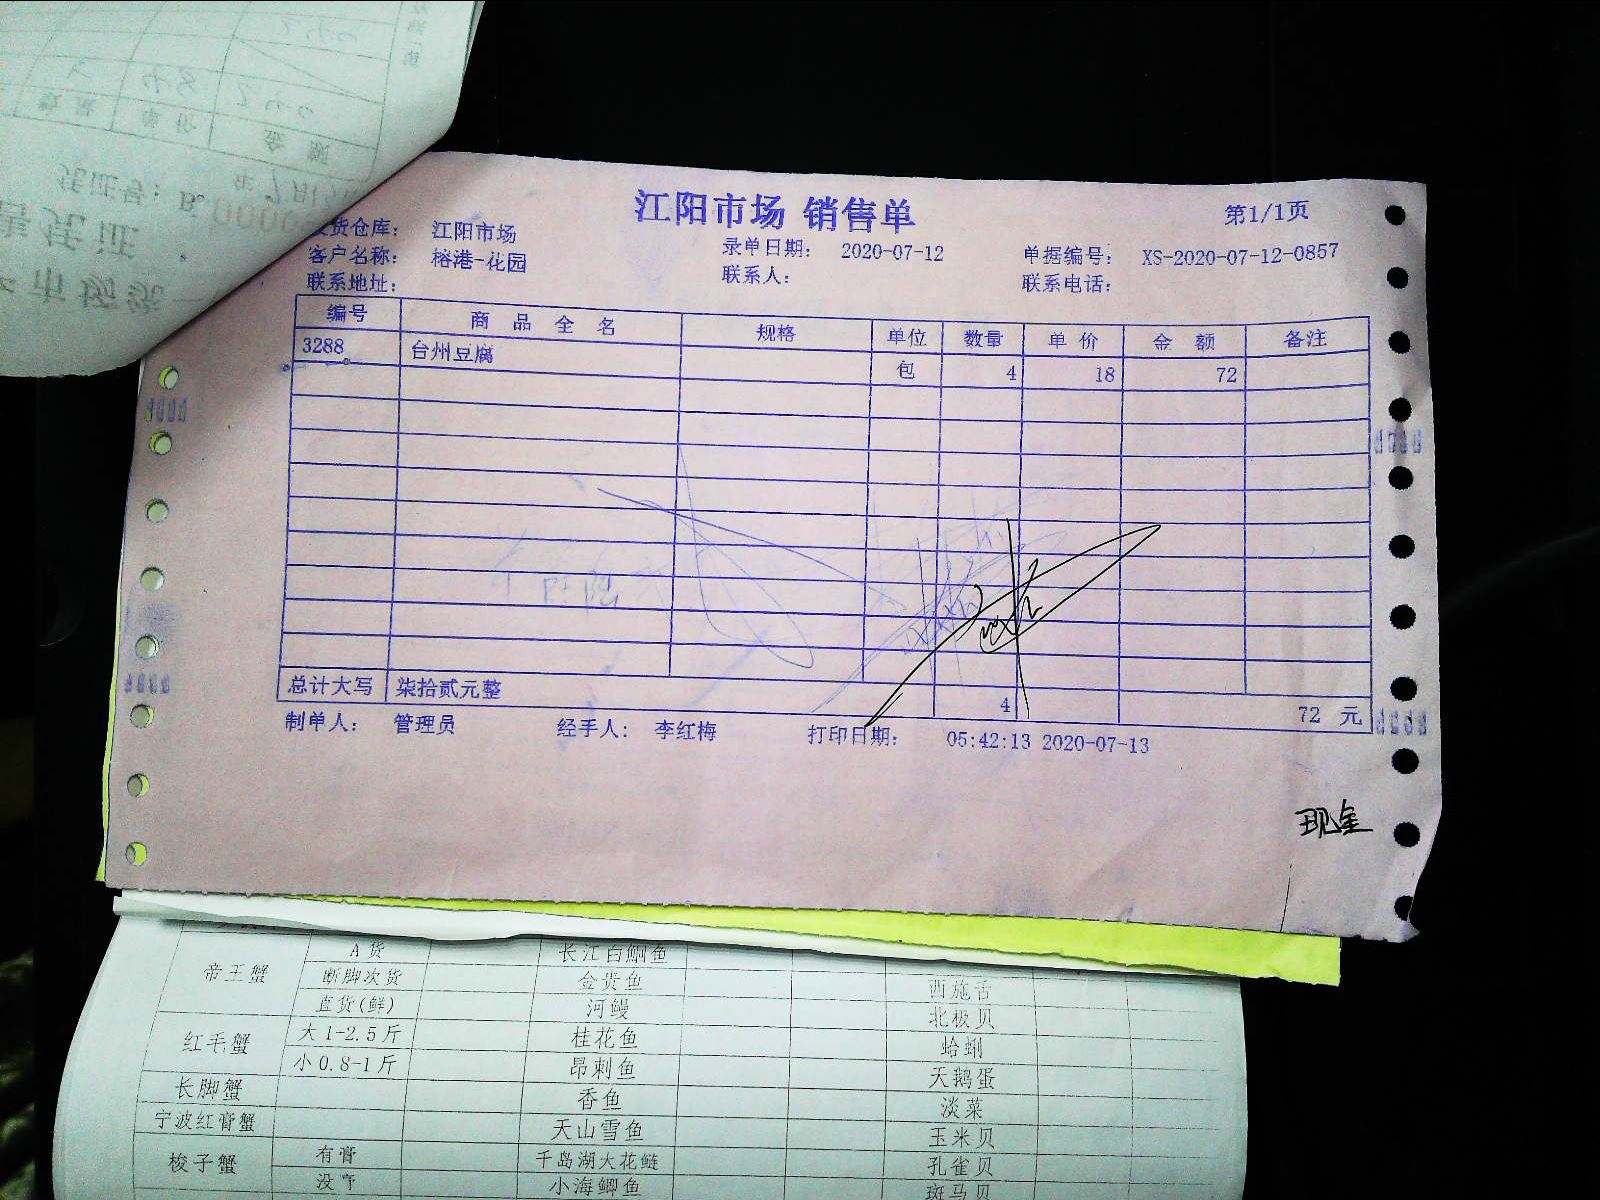 江阳市场 销售单
第1/1页
发货仓库： 江阳市场
录单日期： 2020-07-12
单据编号： XS-2020-07-12-0857
客户名称： 榕港-花园
联系人：
联系电话：
联系地址：
编号 商品全名 规格 单位 数量 单价 金额 备注
3288 台州豆腐 包 4 18 72
总计大写 柒拾贰元整 4 72 元
制单人： 管理员 经手人： 李红梅 打印日期： 05:42:13 2020-07-13
现金
帝王蟹 A货 长江白鮰鱼
断脚次货 金贵鱼 西施舌
直货(鲜) 河鳗 北极贝
红毛蟹 大1-2.5斤 桂花鱼 蛤蜊
小0.8-1斤 昂刺鱼 天鹅蛋
长脚蟹 香鱼 淡菜
宁波红膏蟹 天山雪鱼 玉米贝
梭子蟹 有膏 千岛湖大花鲢 孔雀贝
没膏 小海鲫鱼 斑马贝
数量 单价 金额
凭证号：